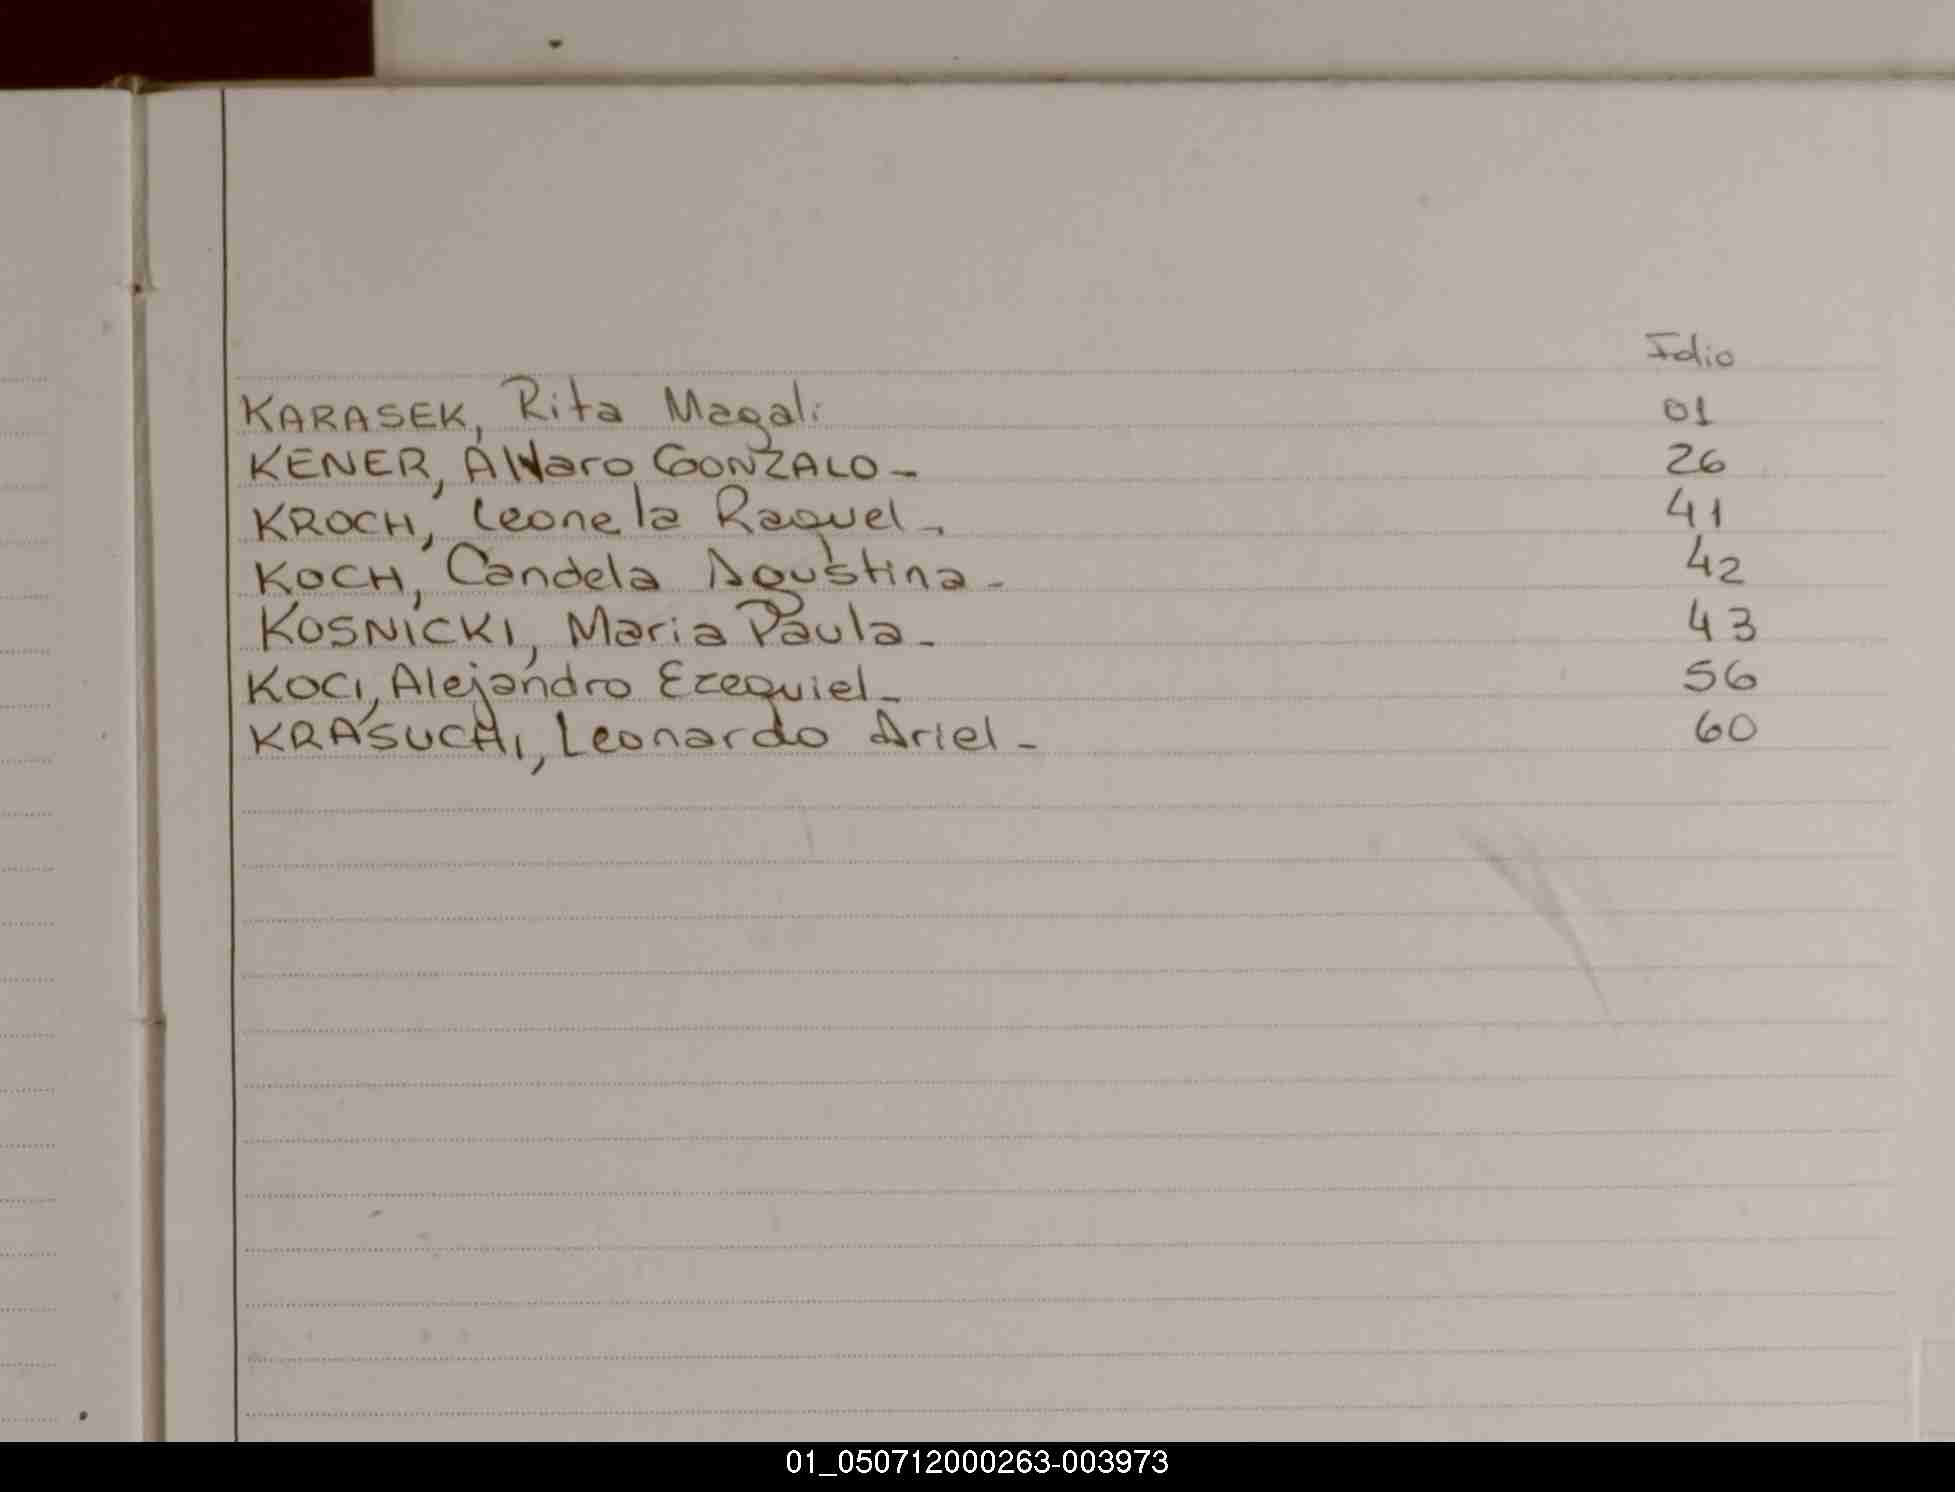 Folio
KARASEK, Rita Magali 01
KENER, Alvaro GONZALO - 26
KROCH, Leonela Raquel - 41
KOCH, Candela Agustina - 42
KOSNICKI, Maria Paula - 43
KOCI, Alejandro Ezequiel - 56
KRASUCHI, Leonardo Ariel - 60
01_050712000263-003973